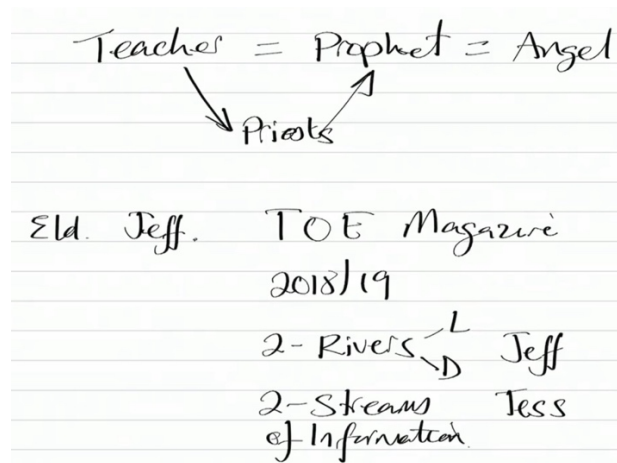 Teacher = Prophet = Angel
Priests
Eld. Jeff. TOE Magazine
2018/19
2-Rivers L Jeff
D
2-Streams Tess
of Information